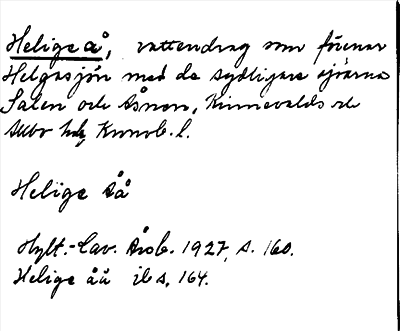 Helige å, vattendrag som förenar
Helgasjön med de sydligare sjöarna
Salen och Åsnen, Kinnevalds och
Allbo hd, Kronob. l.
Helige Åå
Hylt.-Cav. Årsb. 1927, s. 160.
Helige åå ib s, 164.